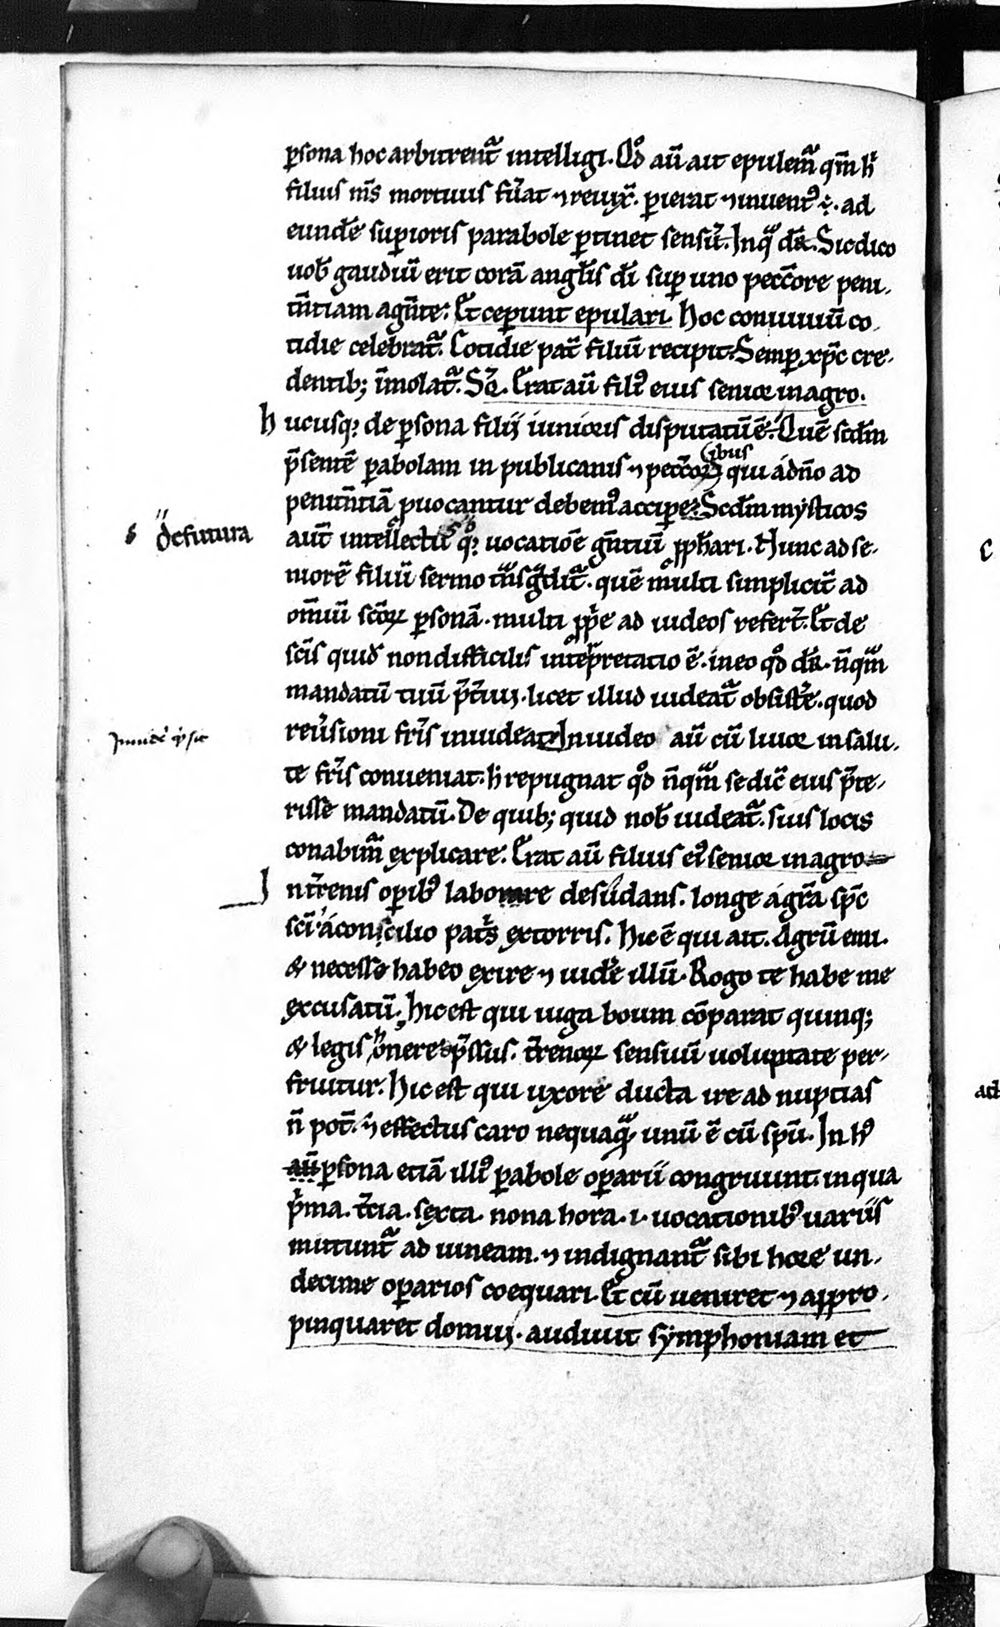 ꝑsona hoc arbitrent᷑ intelligi. Qd̊ aū ait epulem᷑ qm̄ h̵
filius m̄s mortuus fu̾at ⁊ reuix̾. ꝑierat ⁊ inuentꝰ ÷. ad
eund̄e suꝑioris parabole ꝑtinet sensū. Inqͣ dr̄. Sic dico
uob̵ gaudiū erit corā angl̵is d̄i suꝑ uno pecc̄ore peni-
tn̄tiam agn̄te: Et ceꝑunt epulari. Hoc conuiuiū co-
tidie celebrat᷑. Cotidie pat̄ filiū recipit. Semꝑ xp̄c cre-
dentib; īmolat᷑. Sꝗ. Erat aū filꝰ eius senior in agro.
h ucusq; de ꝑsona filij iunioris disputatū ē. Quē scd̄m
p̄sentē ꝑabolam in publicanis ⁊ pecc̄oꝝ ibus qui ád n̄o ad
penitn̄tiā ꝓuocantur debemꝰ acciꝑe: Scd̄m mysticos
s de futura
aut̄ intellectū q̊; uocatiōe gn̄tiū ꝓph̄ari. Nunc ad se-
niorē filiū sermo tͣnsgͣdit᷑. quē multi simplicit̄ ad
om̄iū sc̄oꝝ ꝑsonā. multi ꝓp̾e ad iudeos refert᷑. Et de
sc̄is quid̵ non difficilis int̾pretatio ē. in eo qd̊ dr̄. n̄qͣm
mandatū tuū p̄t̾iui. licet illud uideat᷑ obsist̾e. quod
reu̾sioni fr̄is inuideat. Inuideo aū cū liuor in salu-
Inuide qͥ sit
te fr̄is conueniat. h̵ repugnat qd̊ n̄qͣm se dic̄ eius p̄te-
risse mandatū. De quib; quid nob̵ uideat᷑. suis locis
conabim᷑ explicare: Erat aū filius eiꝰ senior in agro
I nt̾renis oꝑibꝰ laborare desudans. longe á gr̄a sp̄c
sc̄i. á conscilio pat̾s extorris. Hic ē qui ait. Agrū emi.
& necesse habeo exire ⁊ uid̾e illū. Rogo te habe me
excusatū. Hic est qui iuga boum cōparat quinq;
& legis honere p̄ssus. t̾renoꝝ sensuū uoluptate per-
fruitur. Hic est qui uxore ducta ire ad nuptias
n̄ pot̄. ⁊ effectus caro nequaqͣ unū ē cū spū. In hꝰ
aū ꝑsona etiā illiꝰ ꝑabole oꝑarii congruunt. in qua
pͥma. t̾cia. sexta. nona hora .i. uocationibꝰ uariis
mittunt᷑ ad uineam. ⁊ indignant᷑ sibi hore un-
decime oꝑarios coequari. Et cū ueniret ⁊ appro-
pinquaret domui. audiuit symphoniam et